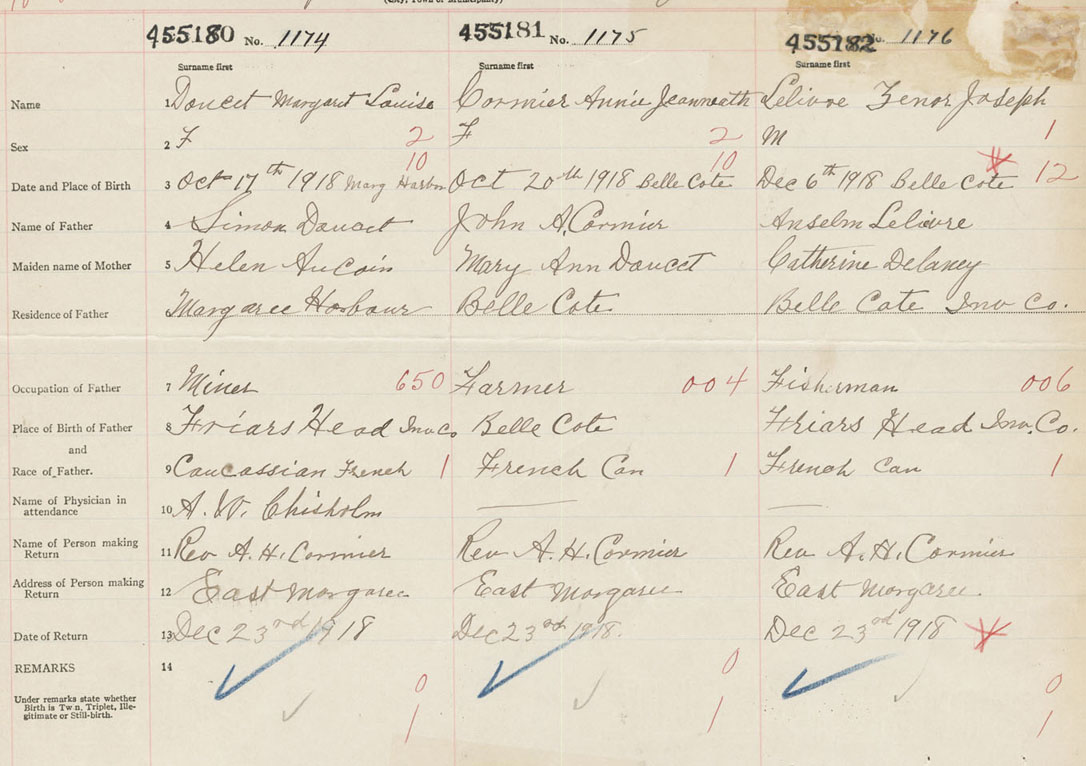 (City, Town or Municipality)
455180 No. 1174 455181 No. 1175 455182 No. 1176
Surname first Surname first Surname first
Name 1 Doucet Margaret Louise Cormier Annie Jeanneath Lelivre Zenor Joseph
Sex 2 F 2 F 2 M 1
10 10
Date and Place of Birth 3 Oct 17th 1918 Marg Harbor Oct 20th 1918 Belle Cote Dec 6th 1918 Belle Cote 12
Name of Father 4 Simon Doucet John A. Cormier Anselm Lelivre
Maiden name of Mother 5 Helen AuCoin Mary Ann Doucet Catherine Delaney
Residence of Father 6 Margaree Harbour Belle Cote Belle Cote Inv Co.
Occupation of Father 7 Miner 650 Farmer 004 Fisherman 006
Place of Birth of Father 8 Friars Head Inv Co Belle Cote Friars Head Inv. Co.
and
Race of Father. 9 Caucassian French 1 French Can 1 French Can 1
Name of Physician in
attendance 10 A. W. Chisholm
Name of Person making
Return 11 Rev A. H. Cormier Rev A. H. Cormier Rev A. H. Cormier
Address of Person making
Return 12 East Margaree East Margaree East Margaree
Date of Return 13 Dec 23rd 1918 Dec 23rd 1918. Dec 23rd 1918
REMARKS 14
0 0 0
Under remarks state whether
Birth is Twin, Triplet, Ille-
gitimate or Still-birth.
1 1 1